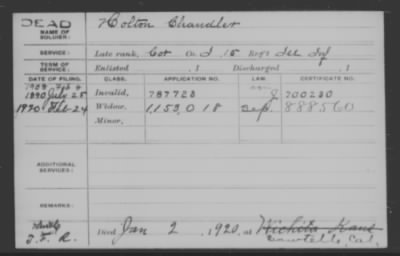 DEAD
NAME OF SOLDIER:
Holton Chandler
SERVICE:
Late rank, Co. I, 15 Reg't Ill Inf
TERM OF SERVICE:
Enlisted , 1 Discharged , 1
DATE OF FILING. CLASS. APPLICATION NO. LAW. CERTIFICATE NO.
1890 July 28 Invalid, 787728 J 700280
1920 Feb 24 Widow, 1,153,018 Sep. 888560
Minor,
ADDITIONAL SERVICES:
REMARKS:
Died Jan 2, 1920, at Wichita Kans
Sawtelle, Cal.